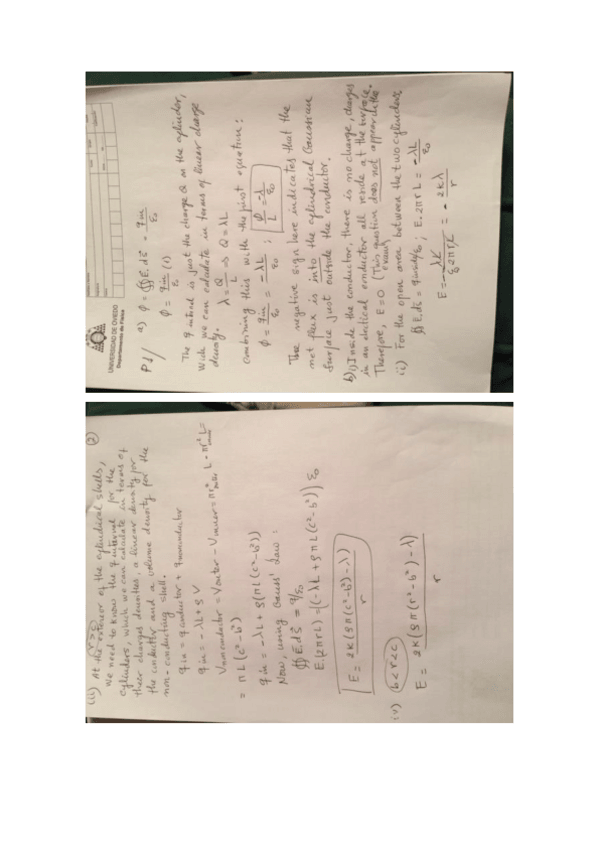 UNIVERSIDAD DE OVIEDO
Departamento de Física
P↓/ a) ϕ = ∯ E⃗.dS⃗ = qin/ε₀
ϕ = qin/ε₀ (1)
The q intend is just the charge Q on the cylinder,
wich we can calculate in terms of linear charge
density.
λ = Q/L ⇒ Q = λL
Combining this with the first equation:
ϕ = qin/ε₀ = -λL/ε₀ ; ϕ/L = -λ/ε₀
The negative sign here indicates that the
net flux is into the cylindrical Gaussian
surface just outside the conductor.
b) i) Inside the conductor, there is no charge, charges
in an electrical conductor all reside at the surface.
Therefore, E=0 (This question does not appear in the
exam)
ii) For the open area between the two cylinders,
∯ E.dS = q inside/ε₀ ; E.2πrL = -λL/ε₀
E = -λL/ε₀2πrL = - 2kλ/r
②
(ii) At the exterior of the cylindrical shells, r>c
we need to know the q internal for the
cylinders, which we can calculate in terms of
their charges densities, a linear density for
the conductor and a volume density for the
non-conducting shell.
qin = q conductor + q nonconductor
qin = -λL + ρV
Vnonconductor = Vouter - Vinner = πr²outer L - πr²inner L =
= πL(c²-b²)
qin = -λL + ρ(πL(c²-b²))
Now, using Gauss' Law:
∯ E⃗.dS⃗ = q/ε₀
E.(2πrL) = (-λL + ρπL(c²-b²))/ε₀
E = 2k(ρπ(c²-b²)-λ)/r
(iv) b<r<c
E = 2k(ρπ(r²-b²)-λ)/r